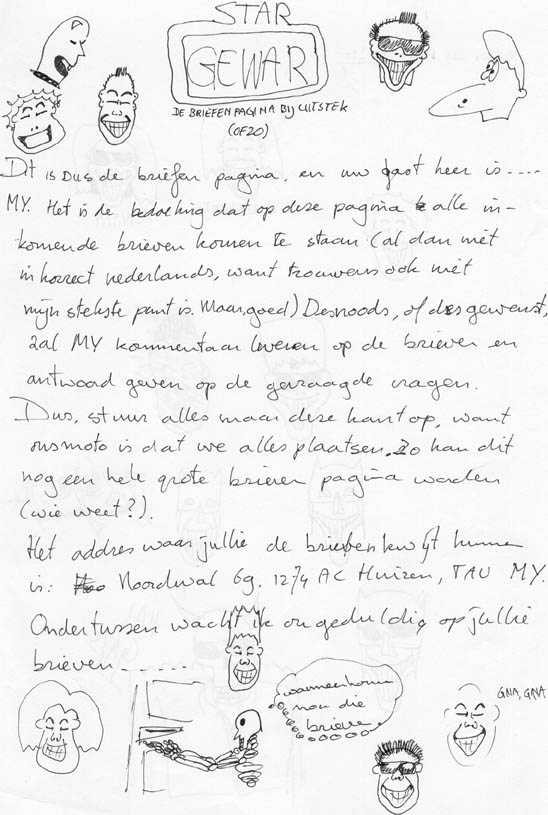 STAR
GEWAR
DE BRIEFEN PAGINA BIJ UITSTEK
(OF ZO)
Dit is Dus de briefen pagina, en uw gast heer is....
MY. Het is de bedoeling dat op deze pagina alle in-
komende brieven komen te staan (al dan niet
in korrect nederlands, want trouwens ook niet
mijn stekste punt is. Maar, goed) Desnoods, of des gewenst,
zal MY kommentaar leveren op de brieven en
antwoord geven op de gevraagde vragen.
Dus, stuur alles maar deze kant op, want
ons moto is dat we alles plaatsen. Zo kan dit
nog een hele grote brieven pagina worden
(wie weet?).
Het addres waar jullie de brieven kwijt kunnen
is: Noordwal 69. 1274 AC Huizen, TAV MY.
Ondertussen wacht ik ongeduldig op jullie
brieven......
wanneer komen
nou die
brieve
GNA, GNA